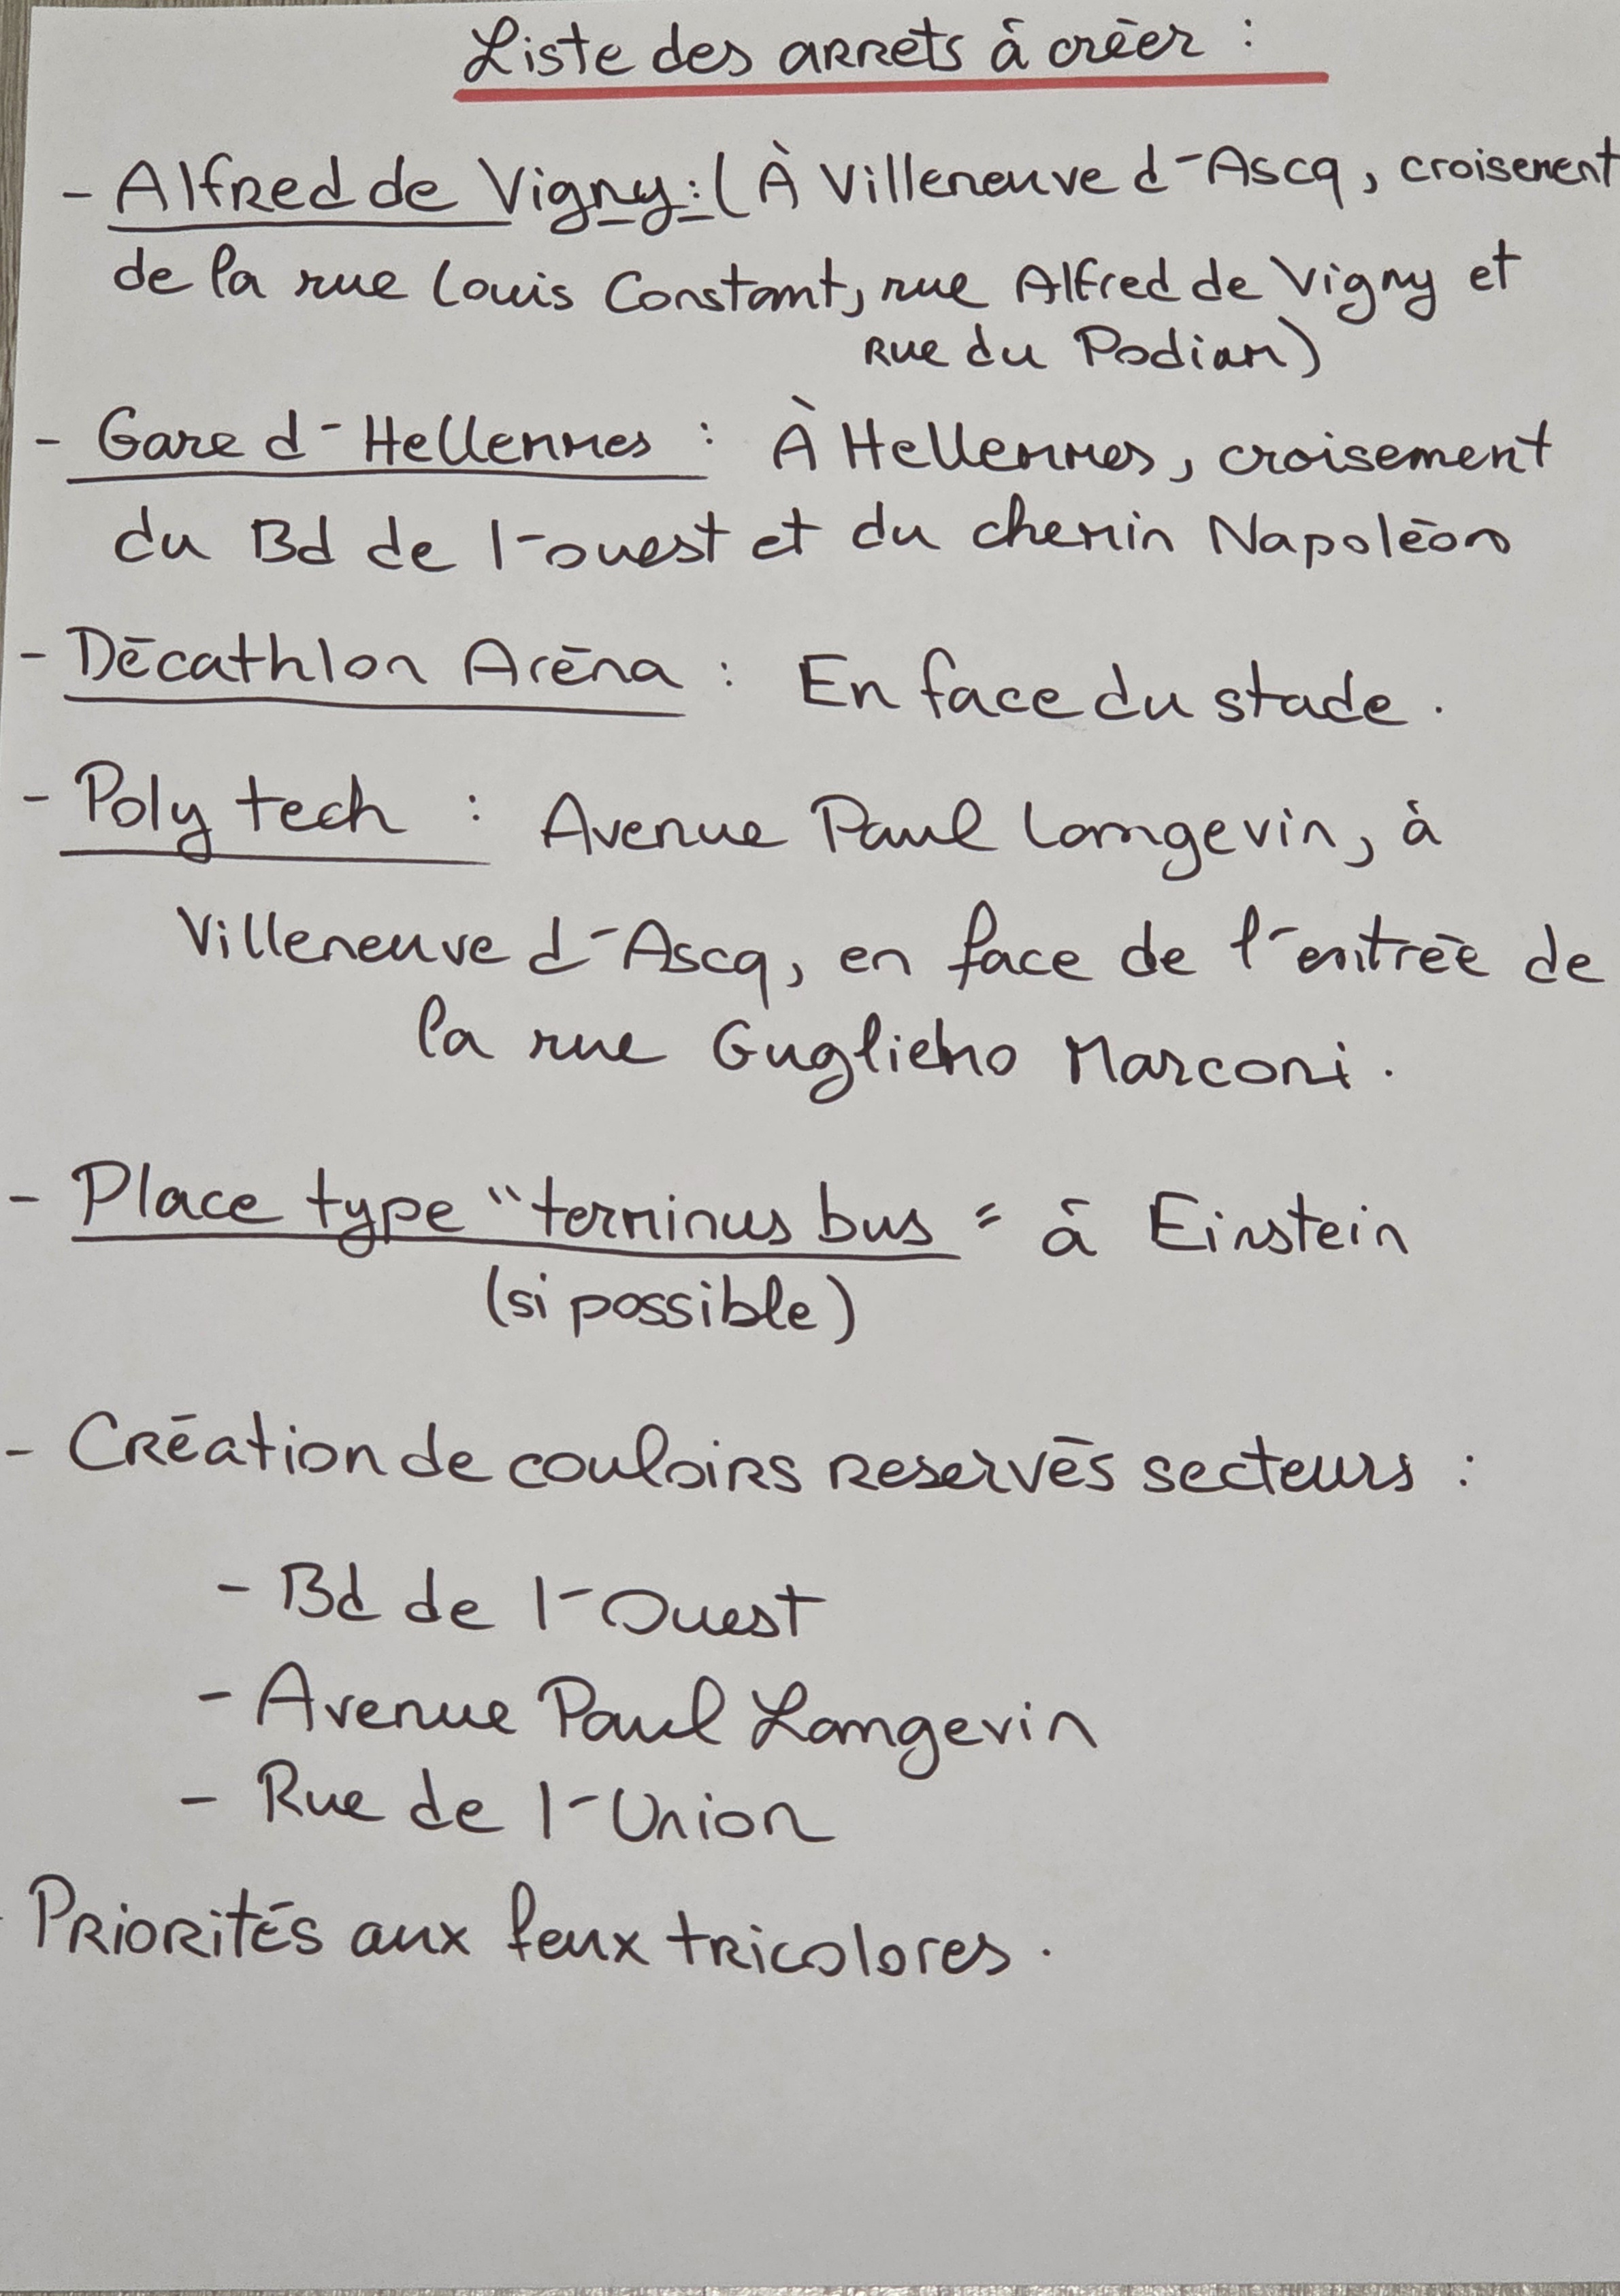 Liste des arrêts à créer :
- Alfred de Vigny : (À Villeneuve d'Ascq, croisement
de la rue Louis Constant, rue Alfred de Vigny et
rue du Podium)
- Gare d'Hellemmes : À Hellemmes, croisement
du Bd de l'ouest et du chemin Napoléon
- Décathlon Aréna : En face du stade.
- Polytech : Avenue Paul Langevin, à
Villeneuve d'Ascq, en face de l'entrée de
la rue Guglielmo Marconi.
- Place type "terminus bus" à Einstein
(si possible)
- Création de couloirs reservés secteurs :
- Bd de l'Ouest
- Avenue Paul Langevin
- Rue de l'Union
Priorités aux feux tricolores.